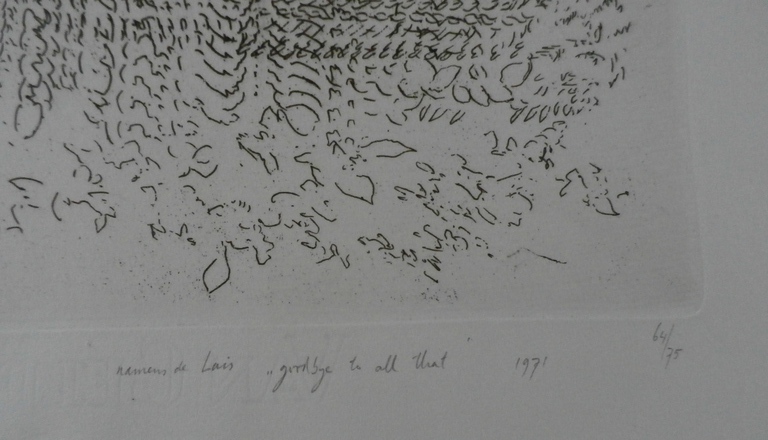 namens de Lais „goodbye to all that" 1971 64/75